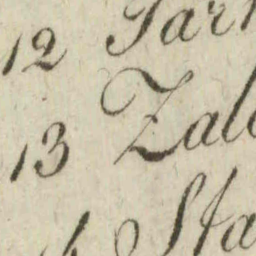 12 Tar
13 Zal
Sta